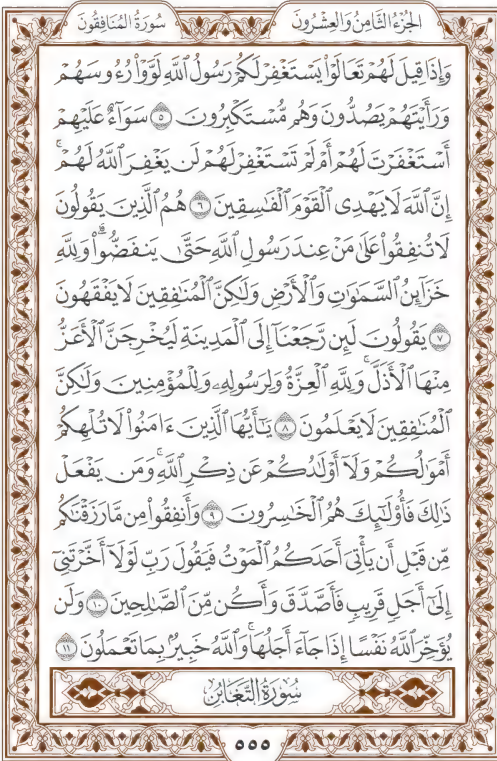 الجُزْءُ الثَّامِنُ وَالعِشْرُونَ سُورَةُ المُنَافِقُونَ
وَإِذَا قِيلَ لَهُمْ تَعَالَوْا۟ يَسْتَغْفِرْ لَكُمْ رَسُولُ ٱللَّهِ لَوَّوْا۟ رُءُوسَهُمْ
وَرَأَيْتَهُمْ يَصُدُّونَ وَهُم مُّسْتَكْبِرُونَ ٥ سَوَآءٌ عَلَيْهِمْ
أَسْتَغْفَرْتَ لَهُمْ أَمْ لَمْ تَسْتَغْفِرْ لَهُمْ لَن يَغْفِرَ ٱللَّهُ لَهُمْ ۚ
إِنَّ ٱللَّهَ لَا يَهْدِى ٱلْقَوْمَ ٱلْفَـٰسِقِينَ ٦ هُمُ ٱلَّذِينَ يَقُولُونَ
لَا تُنفِقُوا۟ عَلَىٰ مَنْ عِندَ رَسُولِ ٱللَّهِ حَتَّىٰ يَنفَضُّوا۟ ۗ وَلِلَّهِ
خَزَآئِنُ ٱلسَّمَـٰوَٰتِ وَٱلْأَرْضِ وَلَـٰكِنَّ ٱلْمُنَـٰفِقِينَ لَا يَفْقَهُونَ
٧ يَقُولُونَ لَئِن رَّجَعْنَآ إِلَى ٱلْمَدِينَةِ لَيُخْرِجَنَّ ٱلْأَعَزُّ
مِنْهَا ٱلْأَذَلَّ ۚ وَلِلَّهِ ٱلْعِزَّةُ وَلِرَسُولِهِۦ وَلِلْمُؤْمِنِينَ وَلَـٰكِنَّ
ٱلْمُنَـٰفِقِينَ لَا يَعْلَمُونَ ٨ يَـٰٓأَيُّهَا ٱلَّذِينَ ءَامَنُوا۟ لَا تُلْهِكُمْ
أَمْوَٰلُكُمْ وَلَآ أَوْلَـٰدُكُمْ عَن ذِكْرِ ٱللَّهِ ۚ وَمَن يَفْعَلْ
ذَٰلِكَ فَأُو۟لَـٰٓئِكَ هُمُ ٱلْخَـٰسِرُونَ ٩ وَأَنفِقُوا۟ مِن مَّا رَزَقْنَـٰكُم
مِّن قَبْلِ أَن يَأْتِىَ أَحَدَكُمُ ٱلْمَوْتُ فَيَقُولَ رَبِّ لَوْلَآ أَخَّرْتَنِىٓ
إِلَىٰٓ أَجَلٍ قَرِيبٍ فَأَصَّدَّقَ وَأَكُن مِّنَ ٱلصَّـٰلِحِينَ ١٠ وَلَن
يُؤَخِّرَ ٱللَّهُ نَفْسًا إِذَا جَآءَ أَجَلُهَا ۚ وَٱللَّهُ خَبِيرٌۢ بِمَا تَعْمَلُونَ ١١
سُورَةُ التَّغَابُنِ
٥٥٥